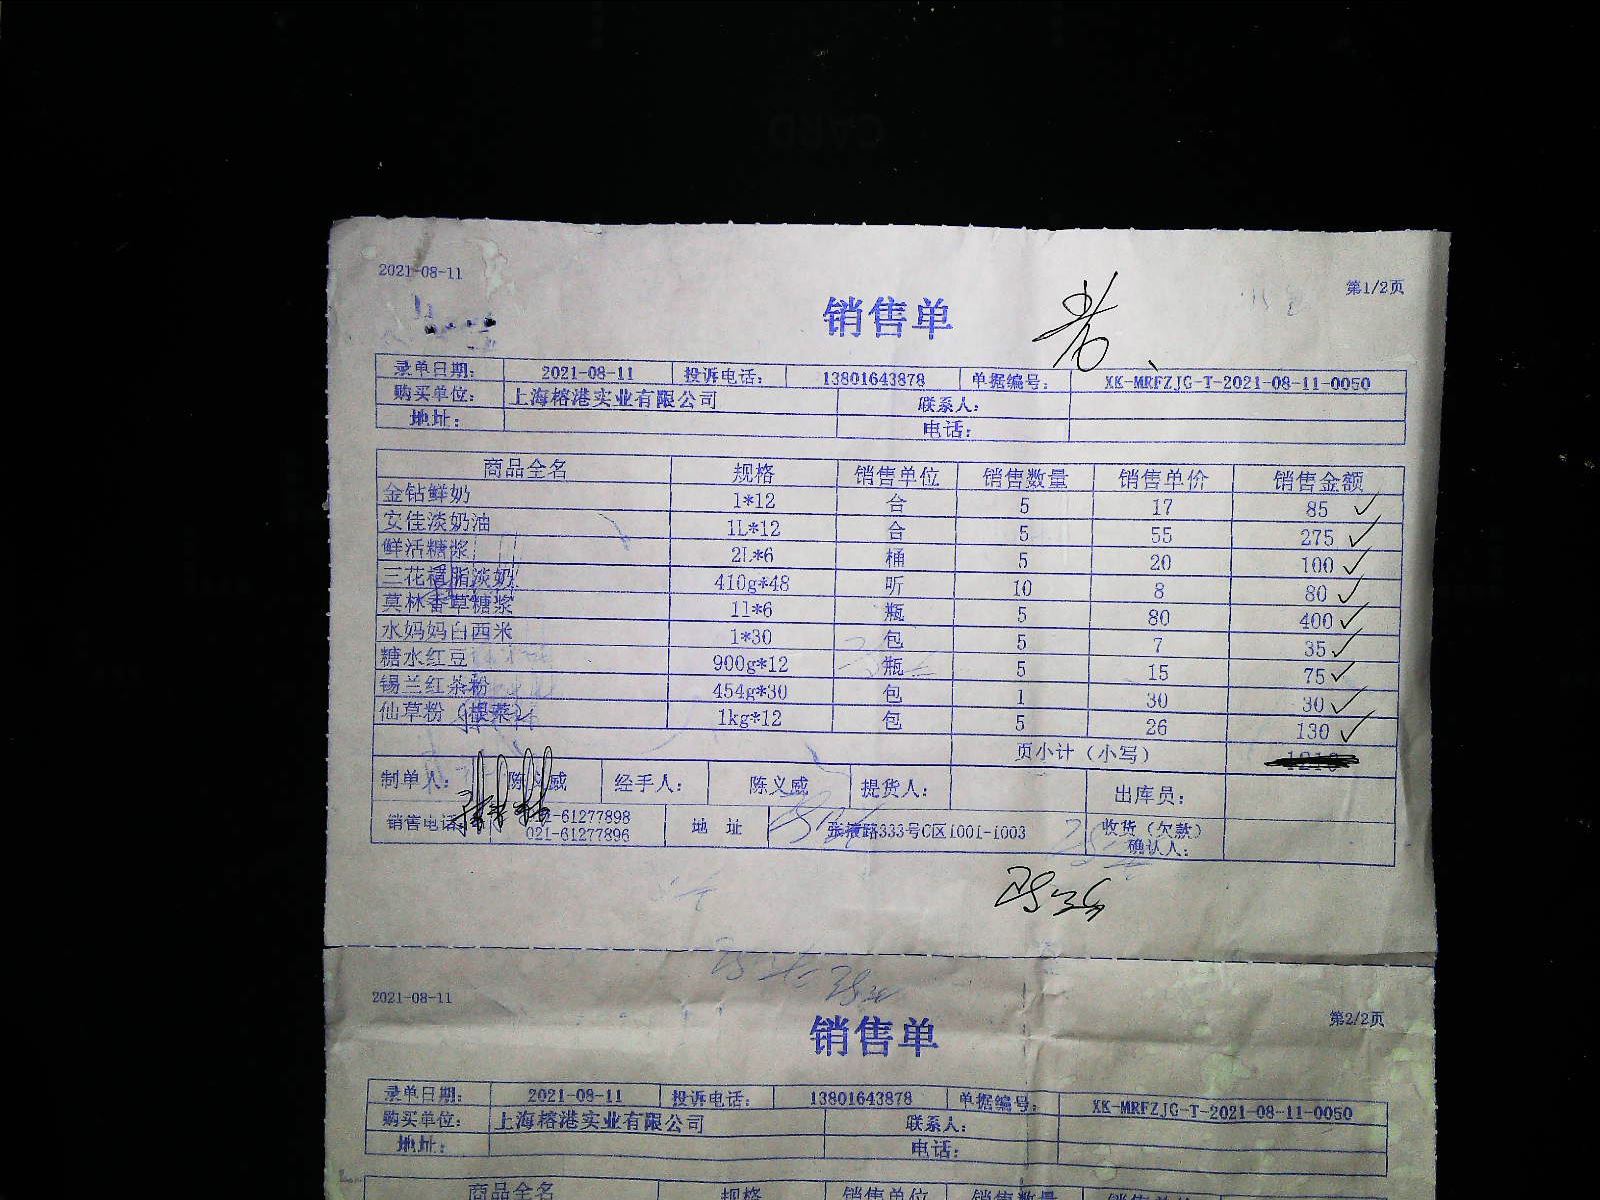 2021-08-11
第1/2页
销售单
录单日期： 2021-08-11 投诉电话： 13801643878 单据编号： XK-MRFZJG-T-2021-08-11-0050
购买单位： 上海榕港实业有限公司 联系人：
地址： 电话：
商品全名 规格 销售单位 销售数量 销售单价 销售金额
金钻鲜奶 1*12 合 5 17 85
安佳淡奶油 1L*12 合 5 55 275
鲜活糖浆 2L*6 桶 5 20 100
三花植脂淡奶 410g*48 听 10 8 80
莫林香草糖浆 1l*6 瓶 5 80 400
水妈妈白西米 1*30 包 5 7 35
糖水红豆 900g*12 瓶 5 15 75
锡兰红茶粉 454g*30 包 1 30 30
仙草粉 1kg*12 包 5 26 130
页小计（小写） 1210
制单人： 陈义威 经手人： 陈义威 提货人： 出库员：
销售电话： 021-61277898 地 址 张掖路333号C区1001-1003 收货（欠款）
021-61277896 确认人：
2021-08-11
第2/2页
销售单
录单日期： 2021-08-11 投诉电话： 13801643878 单据编号： XK-MRFZJG-T-2021-08-11-0050
购买单位： 上海榕港实业有限公司 联系人：
地址： 电话：
商品全名 规格 销售单位 销售数量 销售单价 销售金额